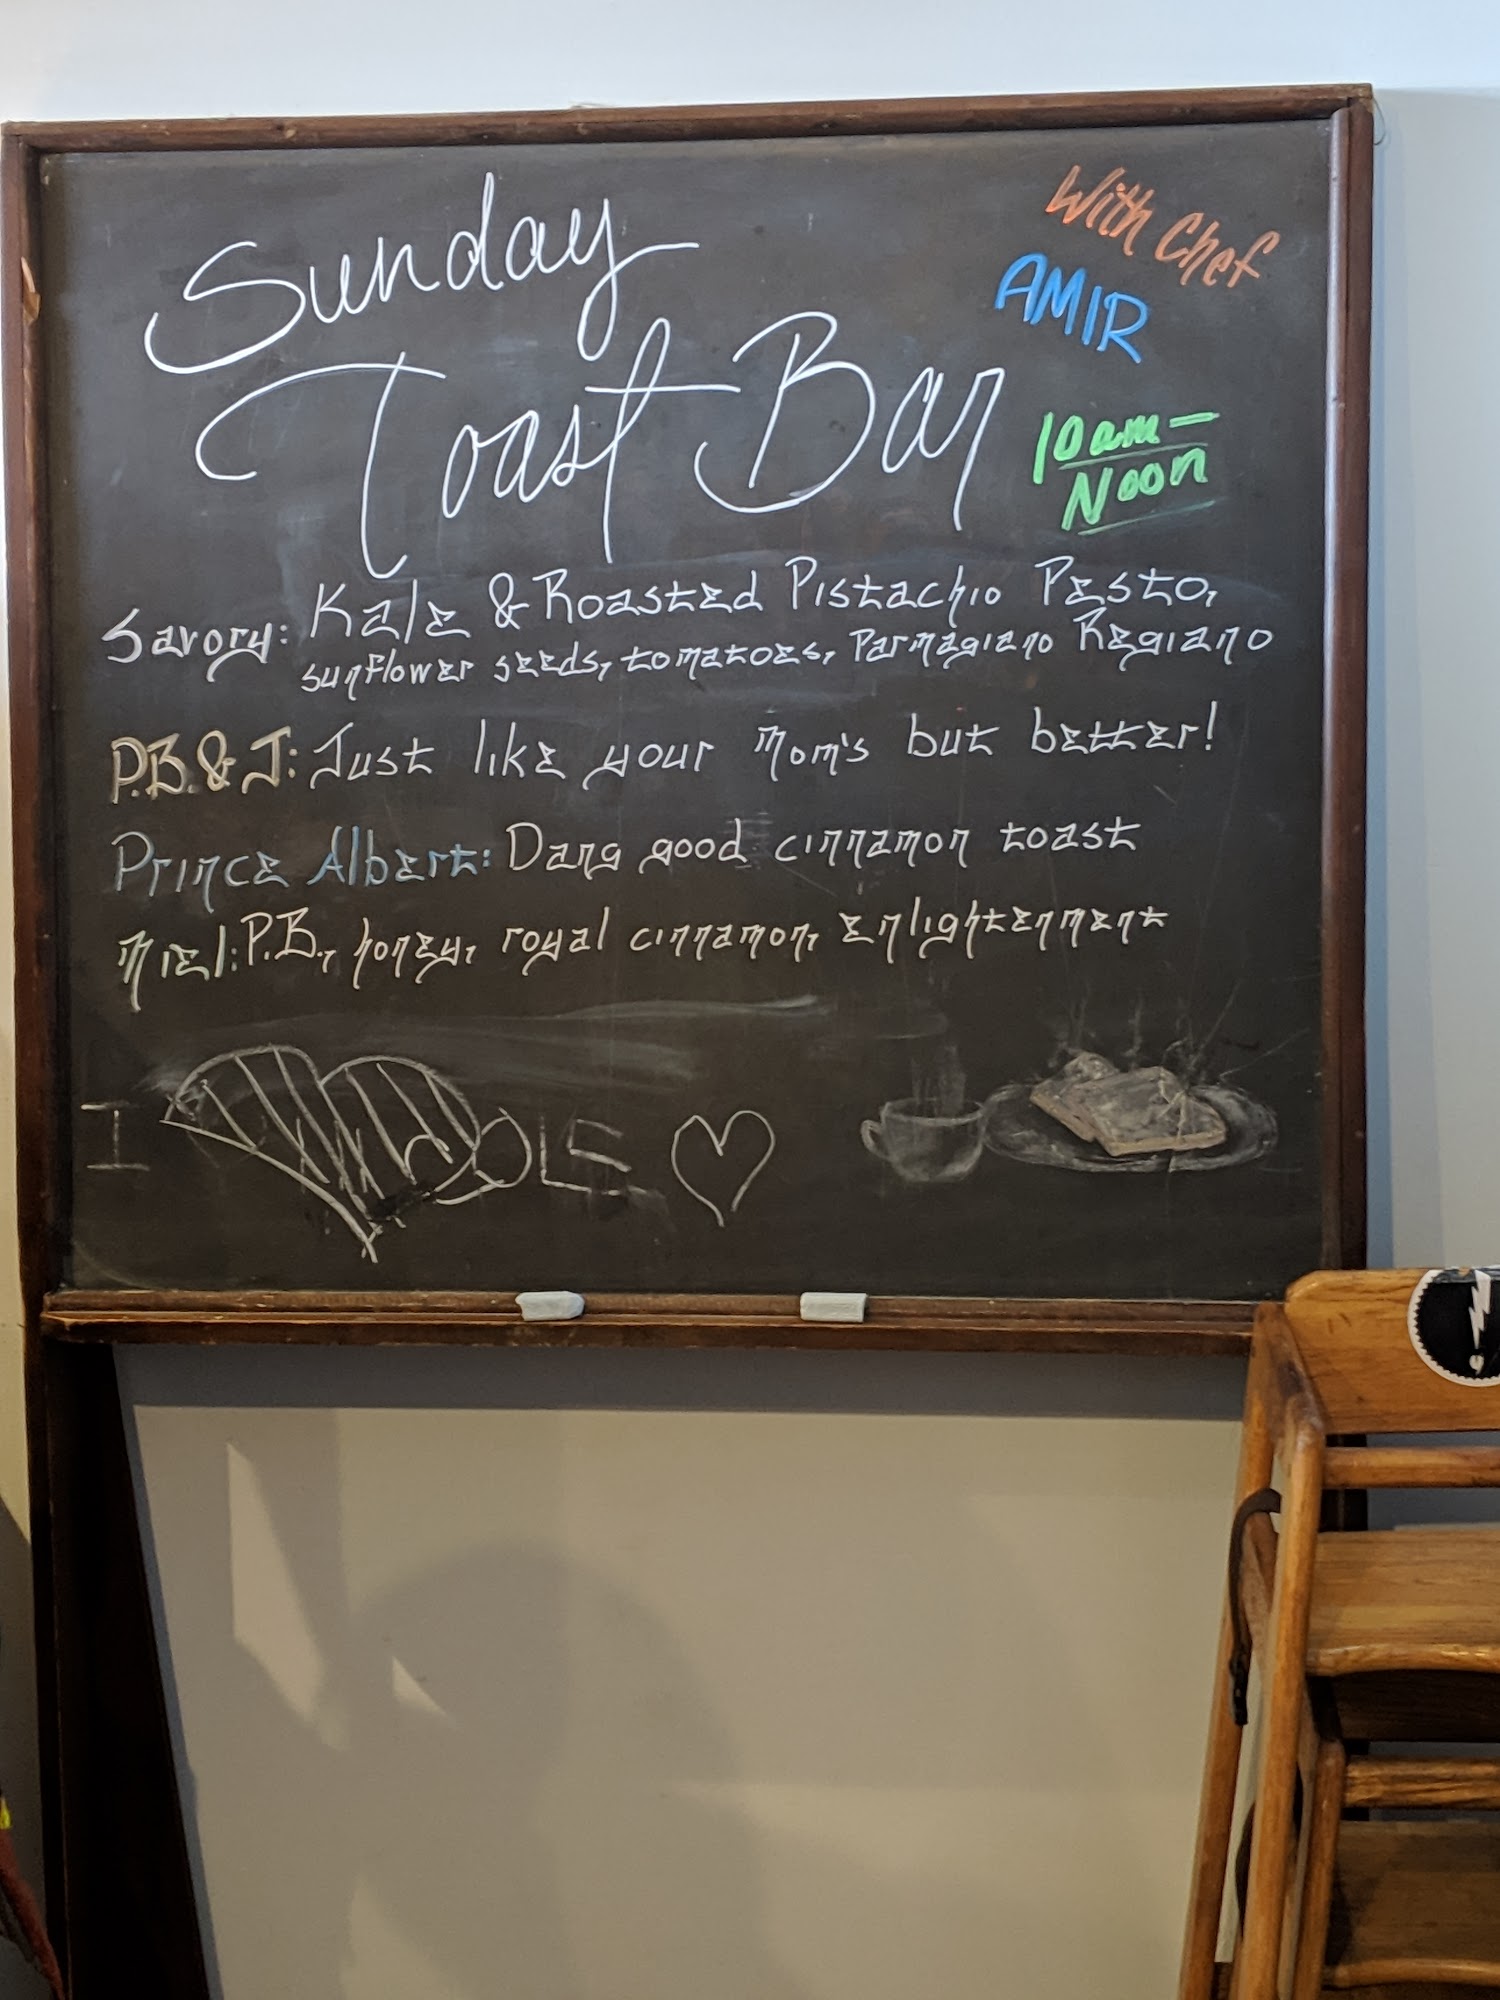 Sunday
Toast Bar
With Chef
AMIR
10am-
Noon
Savory: Kale & Roasted Pistachio Pesto,
sunflower seeds, tomatoes, Parmagiano Regiano
P.B.&J: Just like your Mom's but better!
Prince Albert: Dang good cinnamon toast
Miel: P.B., honey, royal cinnamon, Enlightenment
I